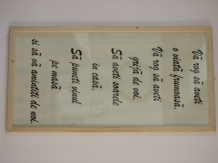 Vă rog să aveți
o viață frumoasă.
Vă rog să aveți
grijă de voi.
Să aveți soarele
în casă,
Să puneți vinul
pe masă
și să vă amintiți de noi.